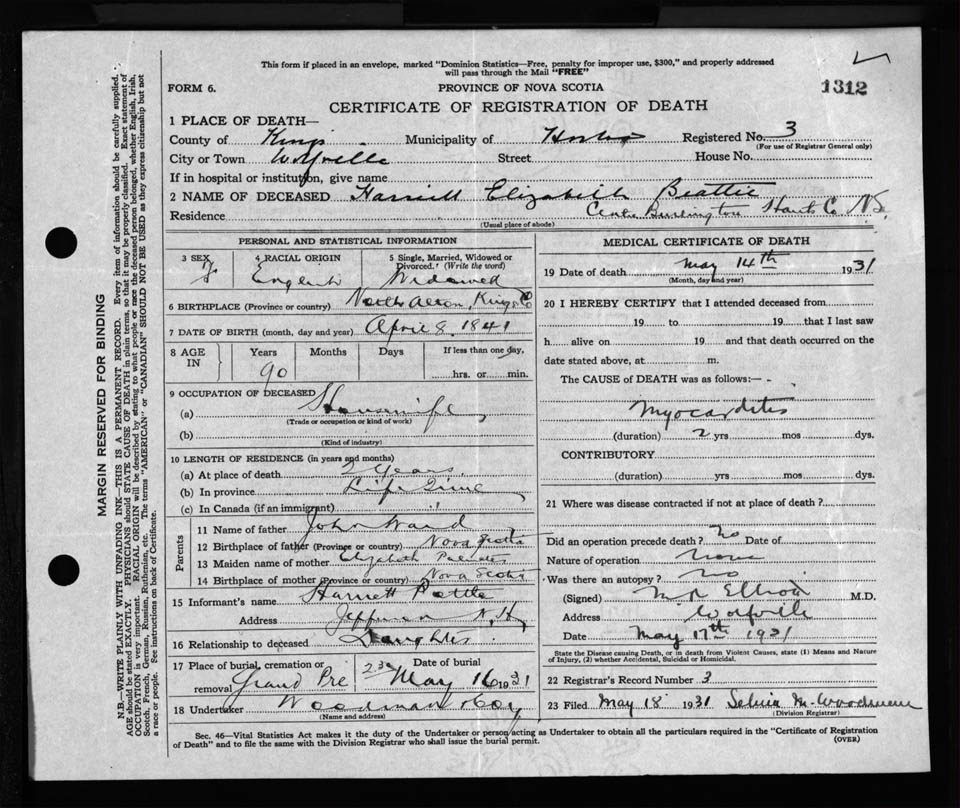 This form if placed in an envelope, marked "Dominion Statistics—Free, penalty for improper use, $300," and properly addressed
will pass through the Mail "FREE"
FORM 6.
PROVINCE OF NOVA SCOTIA
1312
CERTIFICATE OF REGISTRATION OF DEATH
1 PLACE OF DEATH—
County of Kings Municipality of Horton Registered No. 3
(For use of Registrar General only)
City or Town Wolfville Street House No.
If in hospital or institution, give name
2 NAME OF DECEASED Harriett Elizabeth Beattie
Residence Centre Burlington Hants Co. N.S.
(Usual place of abode)
PERSONAL AND STATISTICAL INFORMATION
3 SEX 4 RACIAL ORIGIN 5 Single, Married, Widowed or
Divorced. (Write the word)
F English Widowed
6 BIRTHPLACE (Province or country) North Alton, Kings Co
7 DATE OF BIRTH (month, day and year) April 8. 1841
8 AGE IN Years Months Days If less than one day,
90 hrs. or min.
9 OCCUPATION OF DECEASED
(a) Housewife
(Trade or occupation or kind of work)
(b)
(Kind of industry)
10 LENGTH OF RESIDENCE (in years and months)
(a) At place of death 2 Years
(b) In province Life Time
(c) In Canada (if an immigrant)
Parents
11 Name of father John Ward
12 Birthplace of father (Province or country) Nova Scotia
13 Maiden name of mother Elizabeth
14 Birthplace of mother (Province or country) Nova Scotia
15 Informant's name Harriett
Address Jefferson N.H
16 Relationship to deceased Daughter
17 Place of burial, cremation or Date of burial
removal Grand Pre 2.30 May 16 1931
18 Undertaker Woodman & Co
(Name and address)
MEDICAL CERTIFICATE OF DEATH
19 Date of death May 14th 1931
(Month, day and year)
20 I HEREBY CERTIFY that I attended deceased from
19 to 19 that I last saw
h alive on 19 and that death occurred on the
date stated above, at m.
The CAUSE of DEATH was as follows:—
Myocarditis
(duration) 2 yrs mos dys.
CONTRIBUTORY
(duration) yrs. mos. dys.
21 Where was disease contracted if not at place of death?
Did an operation precede death? no Date of
Nature of operation none
Was there an autopsy? no
(Signed) M R Elliott M.D.
Address Wolfville
Date May 17th 1931
State the Disease causing Death, or in death from Violent Causes, state (1) Means and Nature
of Injury, (2) whether Accidental, Suicidal or Homicidal.
22 Registrar's Record Number 3
23 Filed May 18 1931 M. Woodman
(Division Registrar)
Sec. 46—Vital Statistics Act makes it the duty of the Undertaker or person acting as Undertaker to obtain all the particulars required in the "Certificate of Registration
of Death" and to file the same with the Division Registrar who shall issue the burial permit. (OVER)
MARGIN RESERVED FOR BINDING
N.B.—WRITE PLAINLY WITH UNFADING INK—THIS IS A PERMANENT RECORD. Every item of information should be carefully supplied.
AGE should be stated EXACTLY. PHYSICIANS should STATE CAUSE OF DEATH in plain terms, so that it may be properly classified. Exact statement of
OCCUPATION is very important. RACIAL ORIGIN will be described by stating to what people or race the deceased person belonged, whether English, Irish,
Scotch, French, German, Russian, Ruthenian, etc. The terms "AMERICAN" or "CANADIAN" SHOULD NOT BE USED as they express citizenship but not
a race or people. See instructions on back of Certificate.